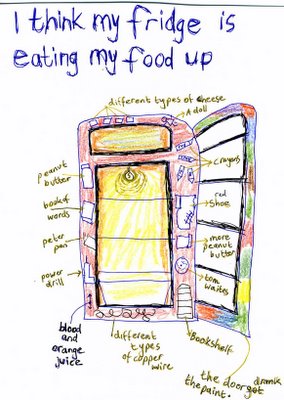 I think my fridge is
eating my food up
different types of cheese
A doll
crayons
peanut
butter
red
shoe
book of
words
peter
pan
more
peanut
butter
power
drill
tom
waits
blood
and
orange
juice
different
types
of copper
wire
Bookshelf
the door got drank
the paint.